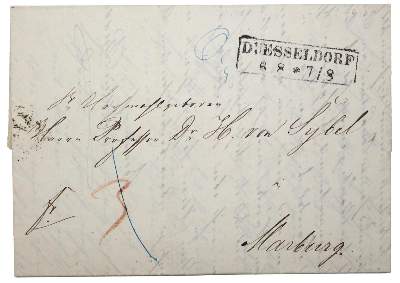 DUESSELDORF
8 8 * 7/8
Sr Hochwohlgeboren
Herrn Professor Dr. H. von Sybel
Marburg.
fr.
3